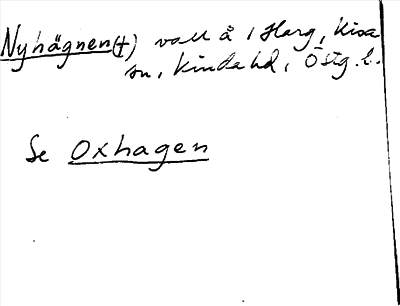 Nyhägnen(†) vall å 1 Harg, Kisa
sn, Kinda hd, Östg. l.
Se Oxhagen